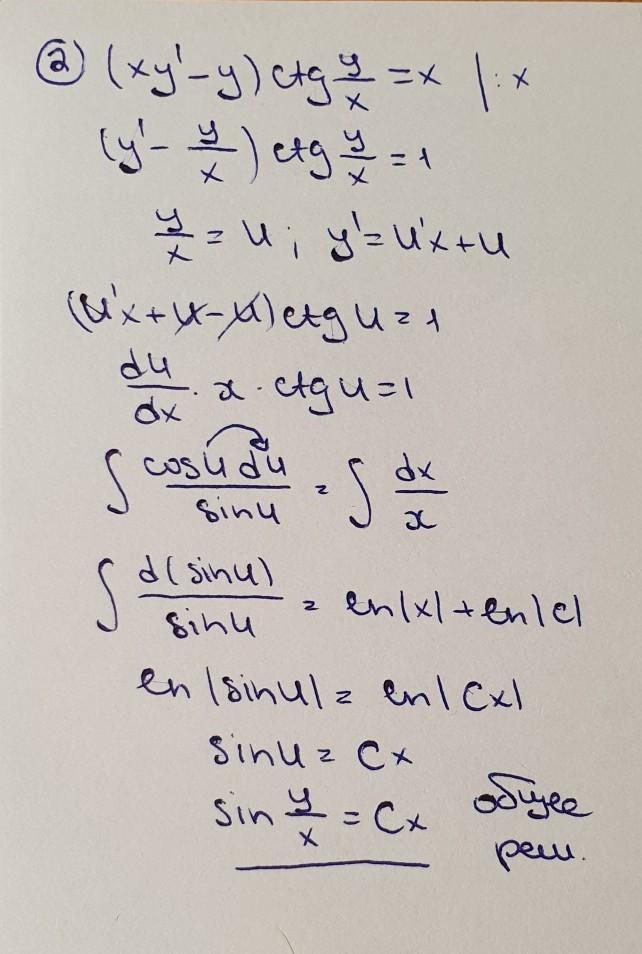 ② (xy' - y) ctg y/x = x | : x
(y' - y/x) ctg y/x = 1
y/x = u ; y' = u'x + u
(u'x + u - u) ctg u = 1
du/dx · x · ctg u = 1
∫ cosu du / sinu = ∫ dx/x
∫ d(sinu) / sinu = ln|x| + ln|c|
ln |sinu| = ln | Cx|
sinu = Cx
sin y/x = Cx общее
реш.